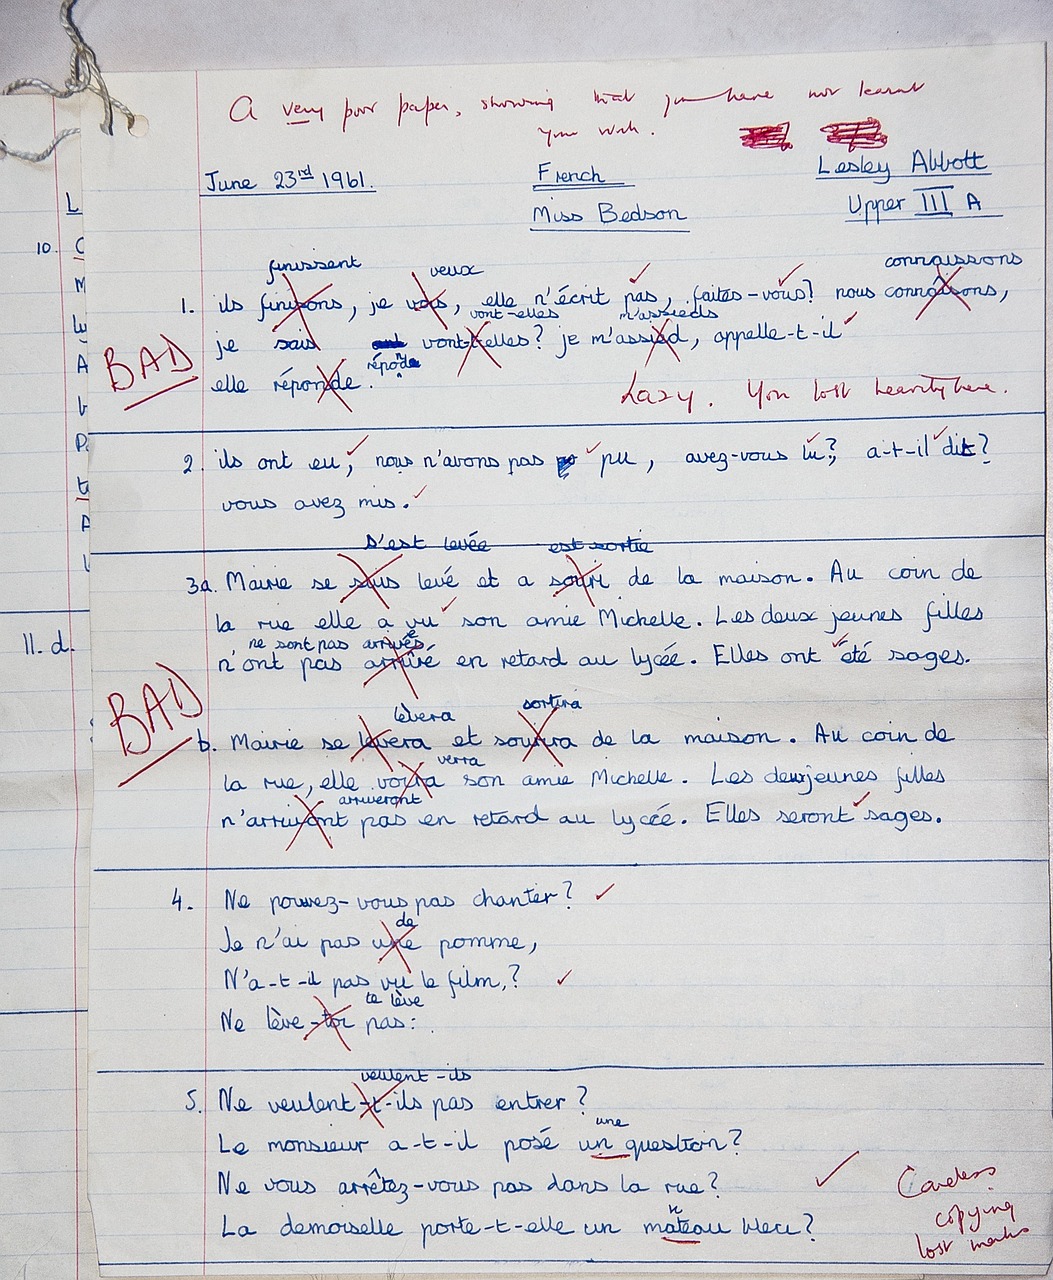 A very poor paper, showing that you have not learnt
your work.
June 23rd 1961.
French
Lesley Abbott
Miss Bedson
Upper III A
L
10.
C
M
A
P
t
A
11. d.
finissent
veux
connaissons
1. ils finisons, je vois, elle n'écrit pas, faites-vous? nous connaisons,
vont-elles
m'assieds
je sais vont-t-elles? je m'assied, appelle-t-il
BAD
réponde
elle réponde.
Lazy. You lost heavily here.
2. ils ont eu, nous n'avons pas pu, avez-vous lu?, a-t-il dit?
vous avez mis.
s'est levée
est sortie
3a. Mairie se suis levé et a souri de la maison. Au coin de
la rue elle a vu son amie Michelle. Les deux jeunes filles
ne sont pas arrivées
n'ont pas arrivé en retard au lycée. Elles ont été sages.
BAD
lèvera
sortira
b. Mairie se levera et sourira de la maison. Au coin de
verra
la rue, elle voira son amie Michelle. Les deuxjeunes filles
arriveront
n'arrivont pas en retard au lycée. Elles seront sages.
4. Ne pouvez-vous pas chanter?
de
Je n'ai pas une pomme,
N'a-t-il pas vu le film,?
te lève
Ne lève-toi pas:.
veulent-ils
5. Ne veulent-t-ils pas entrer?
une
Le monsieur a-t-il posé un question?
Ne vous arrêtez-vous pas dans la rue?
n
La demoiselle porte-t-elle un mateau bleu?
Careless
copying
lost marks